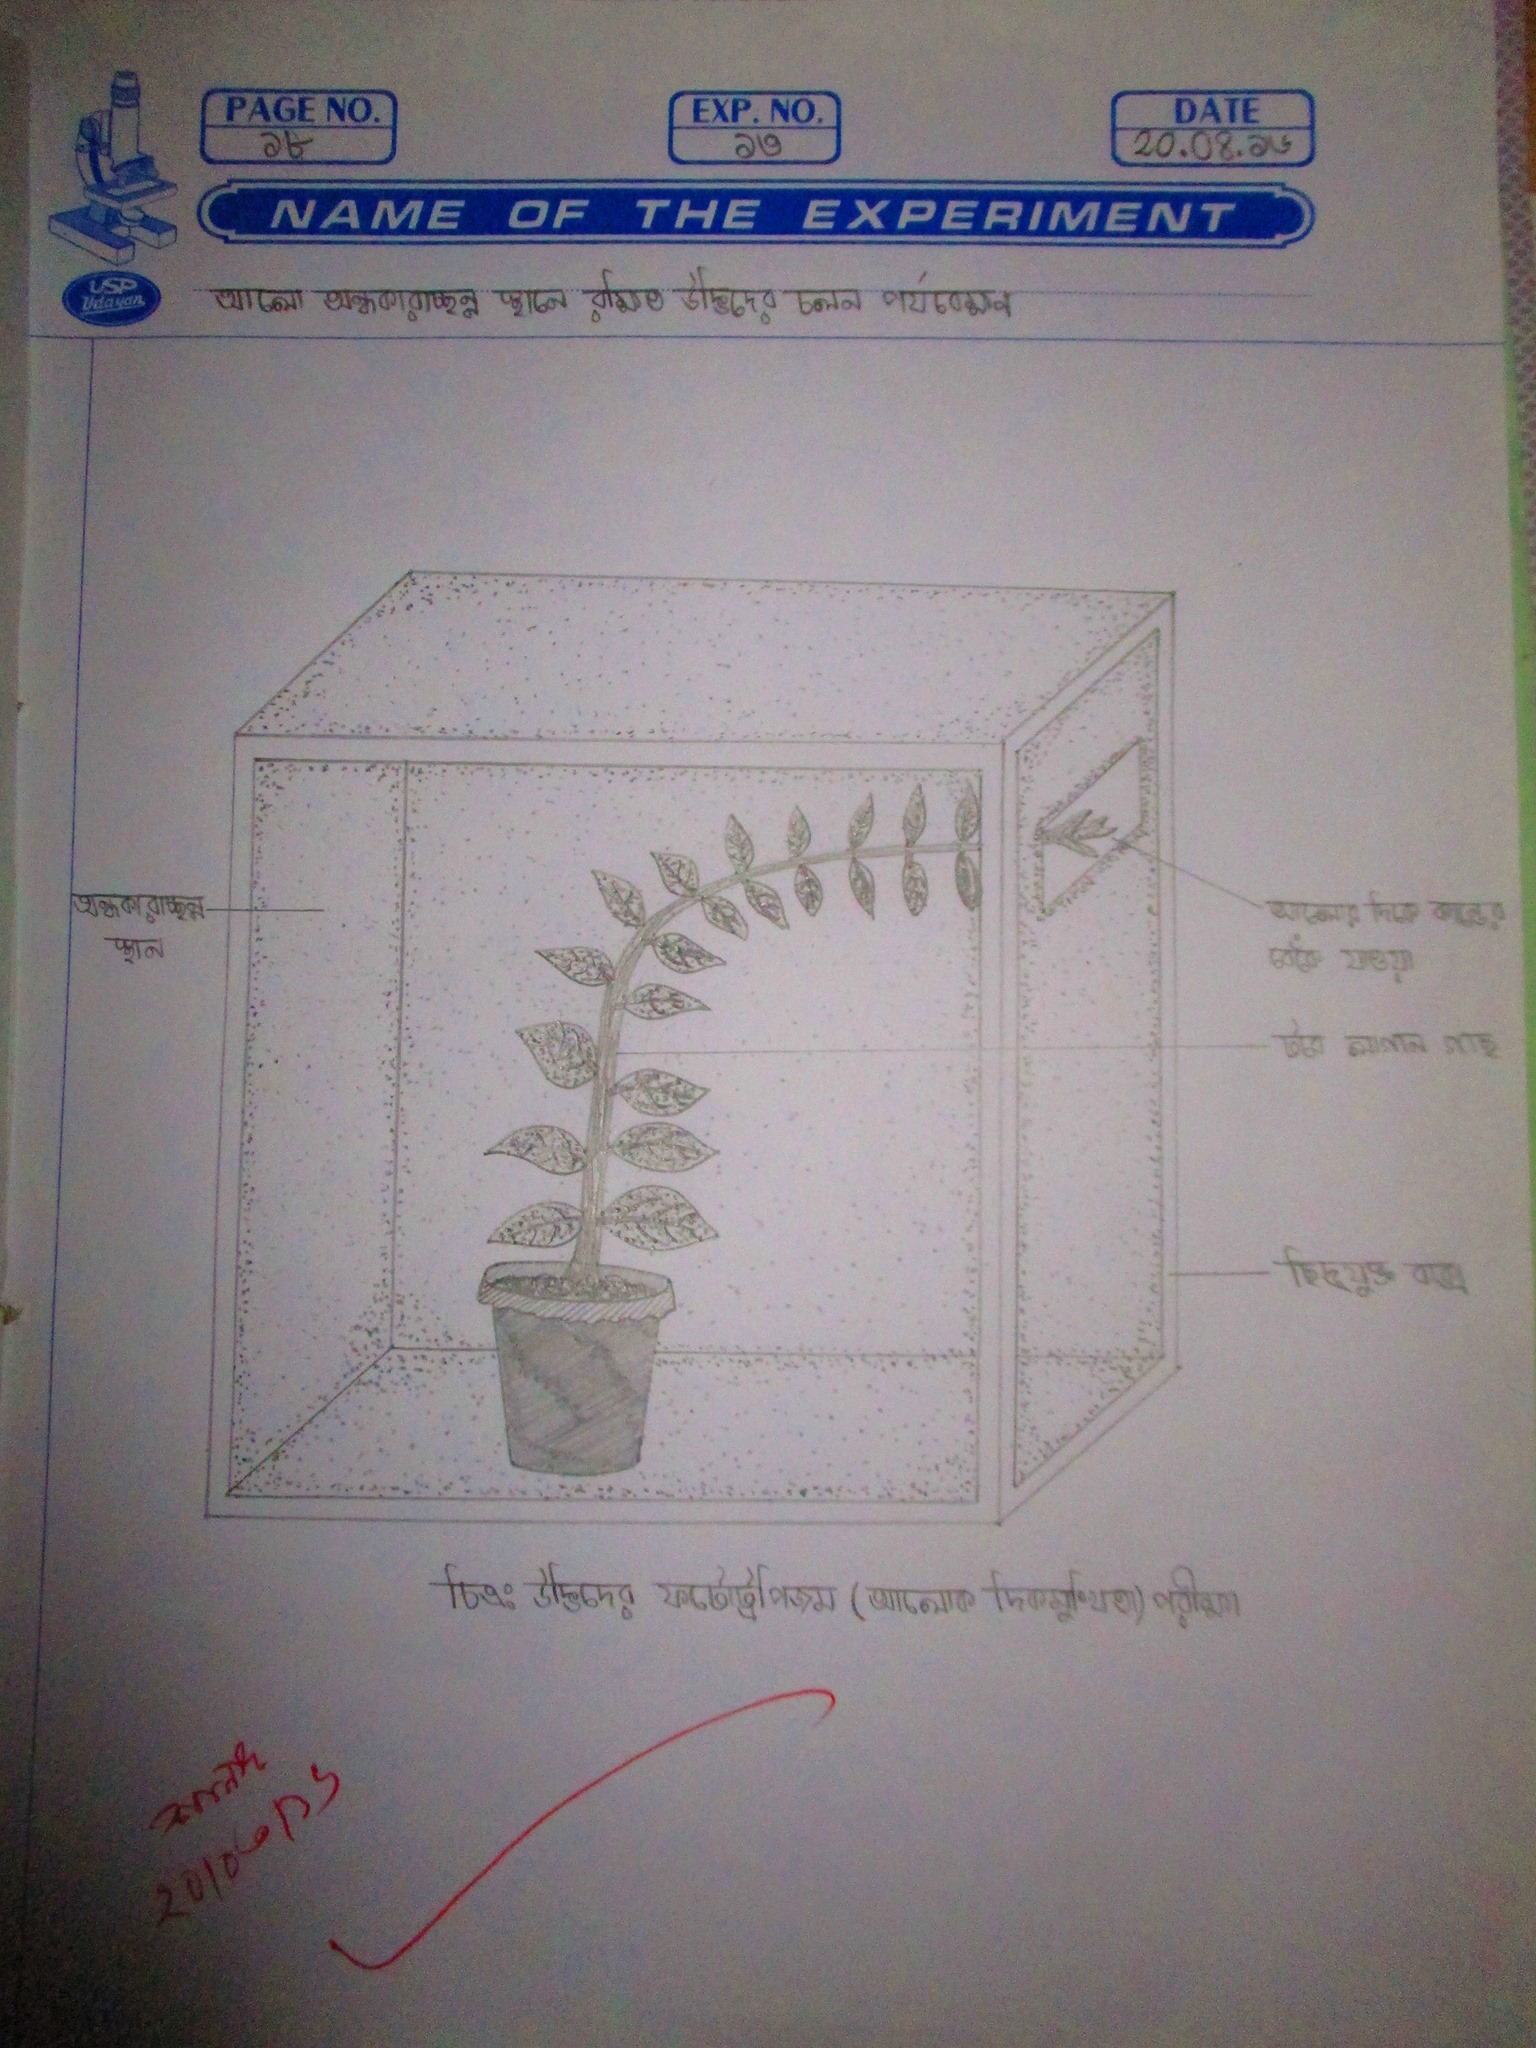 PAGE NO.
১৮
EXP. NO.
১৩
DATE
20.08.১৬
NAME OF THE EXPERIMENT
USP
Udayan
আলো অন্ধকারাচ্ছন্ন স্থানে রক্ষিত উদ্ভিদের চলন পর্যবেক্ষণ
অন্ধকারাচ্ছন্ন
স্থান
আলোর দিকে কান্ডের
বেঁকে যাওয়া
টবে লাগান গাছ
ছিদ্রযুক্ত বাক্স
চিত্রঃ উদ্ভিদের ফটোট্রপিজম (আলোক দিকমুখিতা) পরীক্ষা